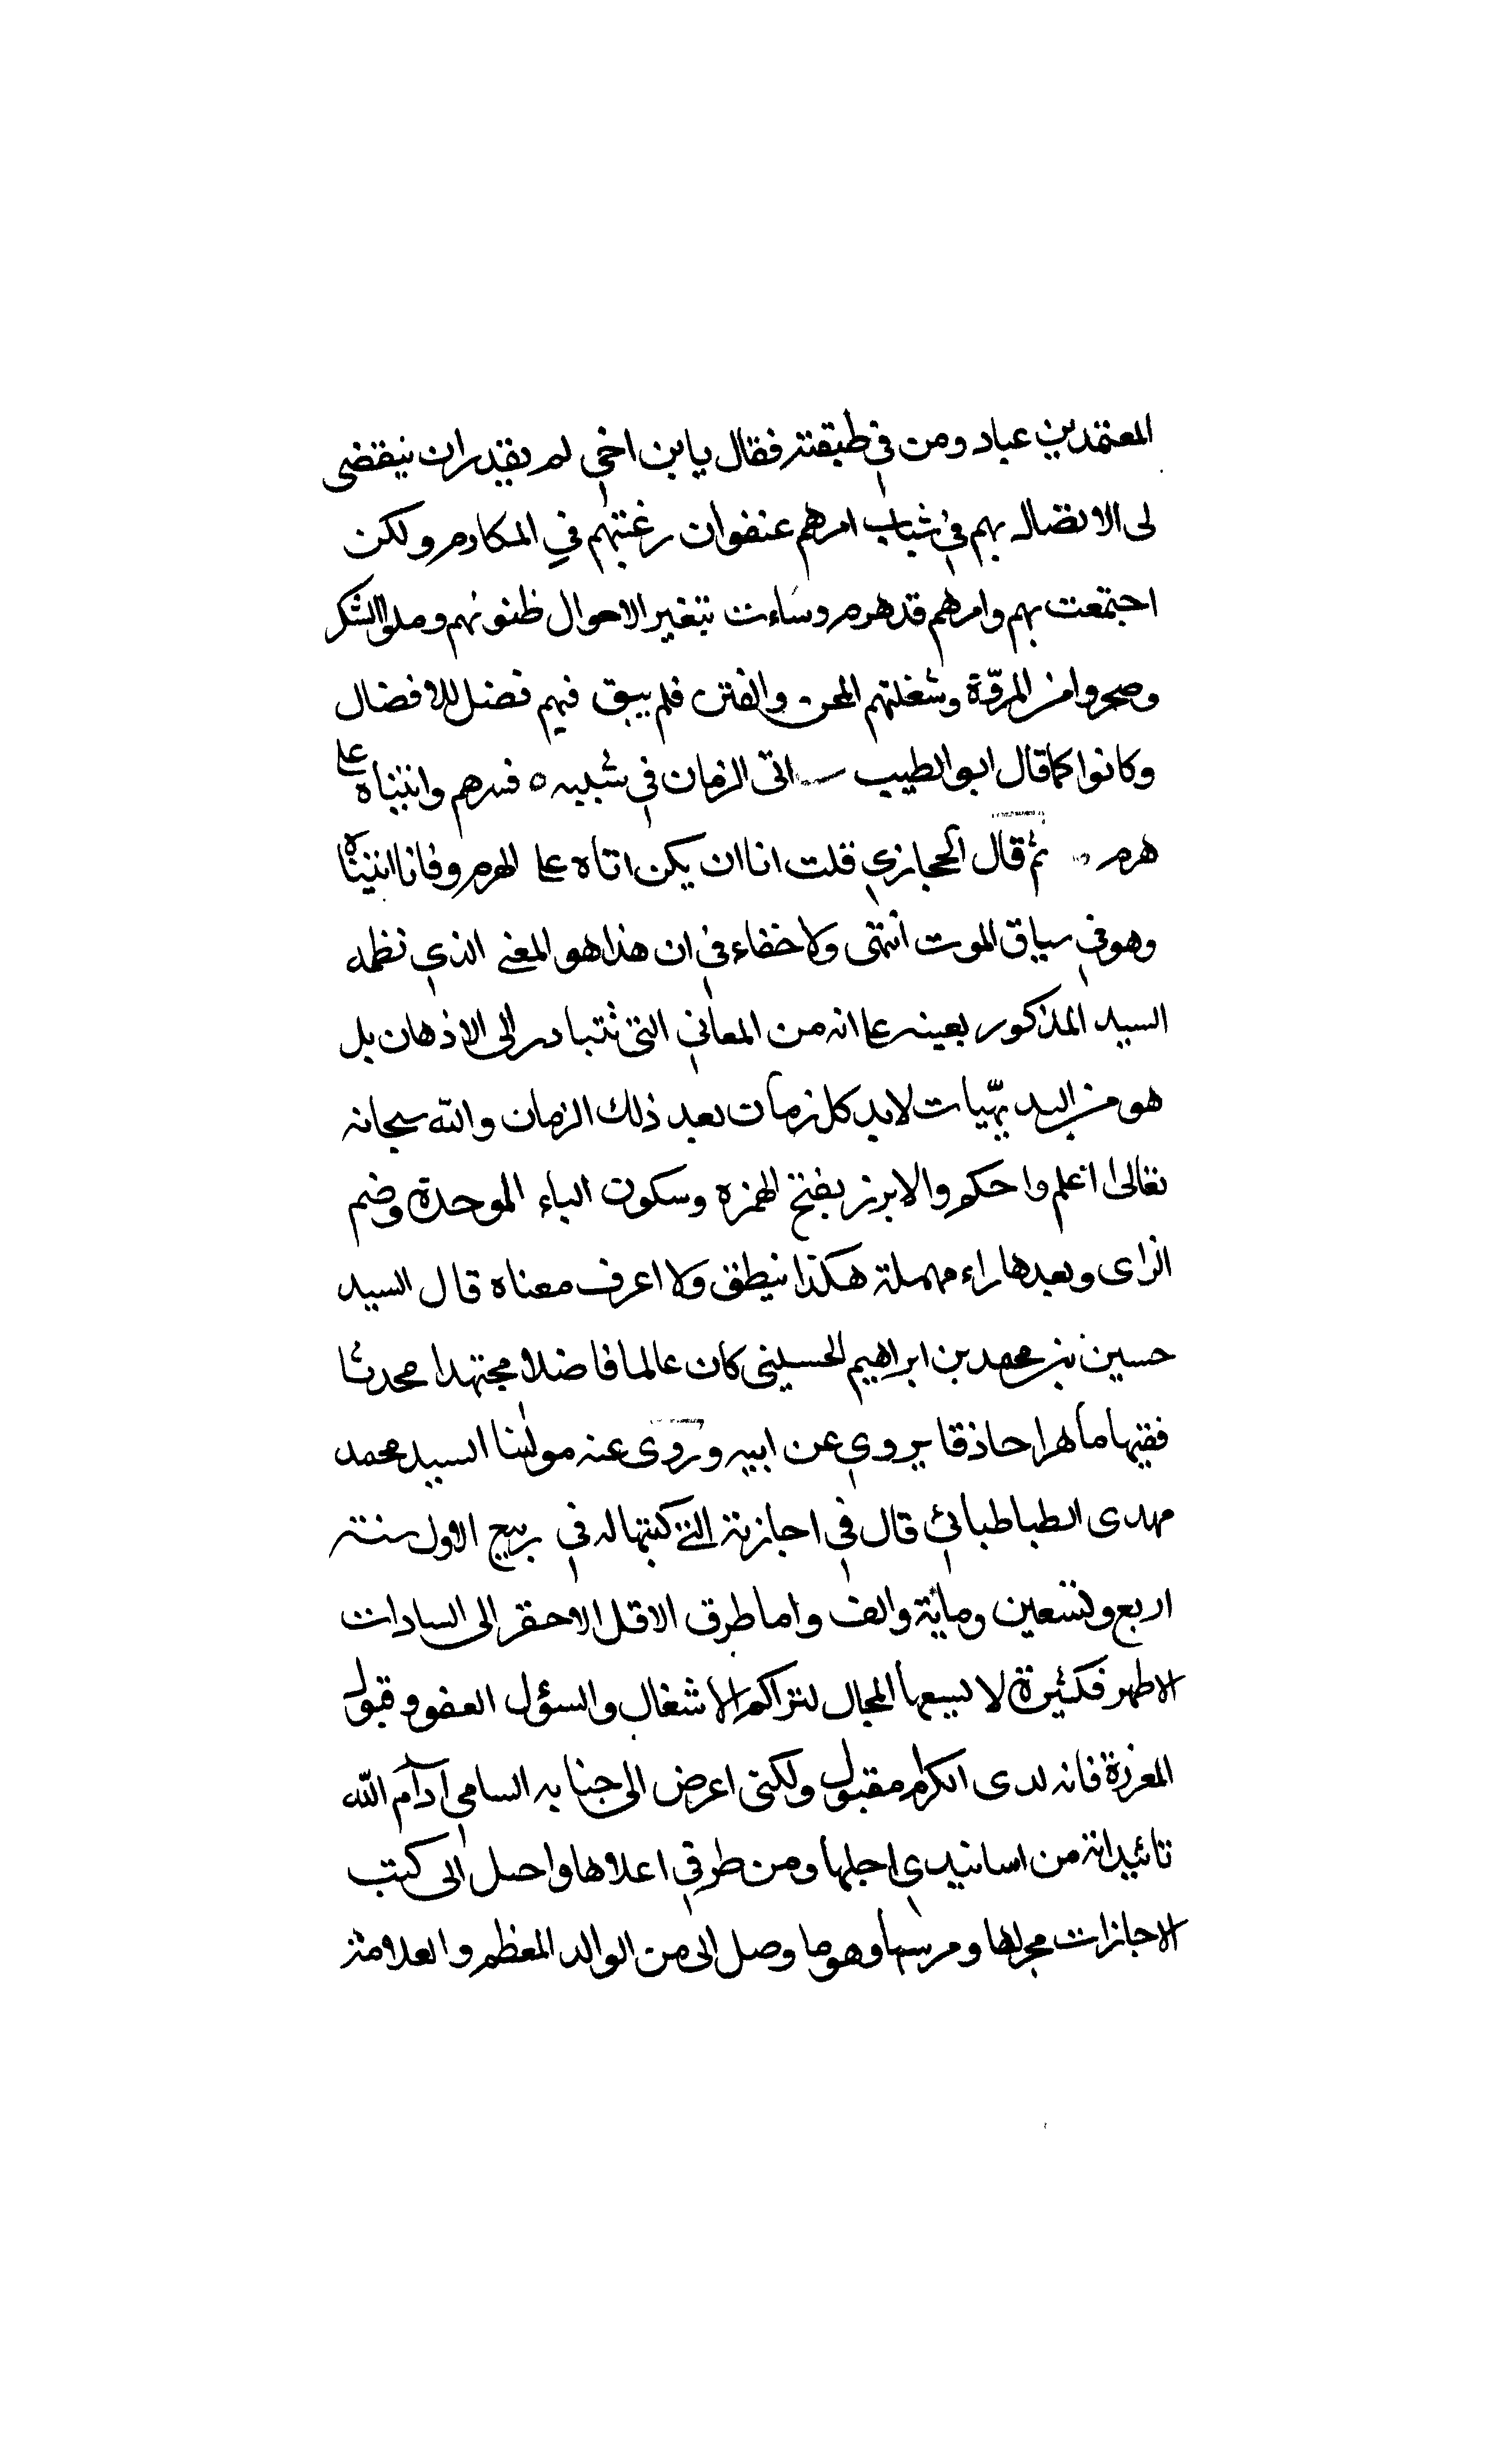 المعتمد بن عباد ومن في طبقته فقال يا بن اخي لم يقدر ان ينقضى
لى الاتصال بهم في شباب امرهم عنفوان رغبتهم في المكارم ولكن
اجتمعت بهم وامرهم قد هرم وساءت بتغير الاحوال ظنونهم وملوا الشكر
وضجروا من المروّة وشغلتهم المحن والفتن فلم يبق فيهم فضل للافضال
وكانوا كما قال ابو الطيب اتى الزمان في شبيبه ٥ فسرهم واتيناه على
هرم ثم قال الحجازي قلت انا ان يكن اتاه على الهرم وفانا اتيناه
وهو في سياق الموت انتهى ولا خفاء في ان هذا هو المعنى الذي نظمه
السيد المذكور بعينه على انه من المعاني التى تتبادر الى الاذهان بل
هو من البديهّيات لابد كل زمان بعد ذلك الزمان والله سبحانه
تعالى اعلم واحكم والابزر بفتح الهمزه وسكون الباء الموحدة وضم
الزاى وبعدها راء مهملة هكذا ينطق ولا اعرف معناه قال السيد
حسين بن محمد بن ابراهيم الحسينى كان عالما فاضلا مجتهدا محدثا
فقيها ماهرا حاذقا يروي عن ابيه وروى عنه مولٰينا السيد محمد
مهدى الطباطبائي قال في اجازته التي كتبها له في ربيع الاول سنة
اربع وتسعين ومائة والف واما طرق الاقل الاحقر الى السادات
الاطهر فكثيرة لا يسعها المجال لتراكم الاشغال والسؤل العفو وقبول
المعزرة فانه لدى الكرام مقبول ولكنى اعرض الى جنابه السامي ادام الله
تائيداته من اسانيدي اجلها ومن طرقي اعلاها واحل الى كتب
الاجازات مجرلها ومرسها وهو ما وصل الى من الوالد المعظم والعلامة